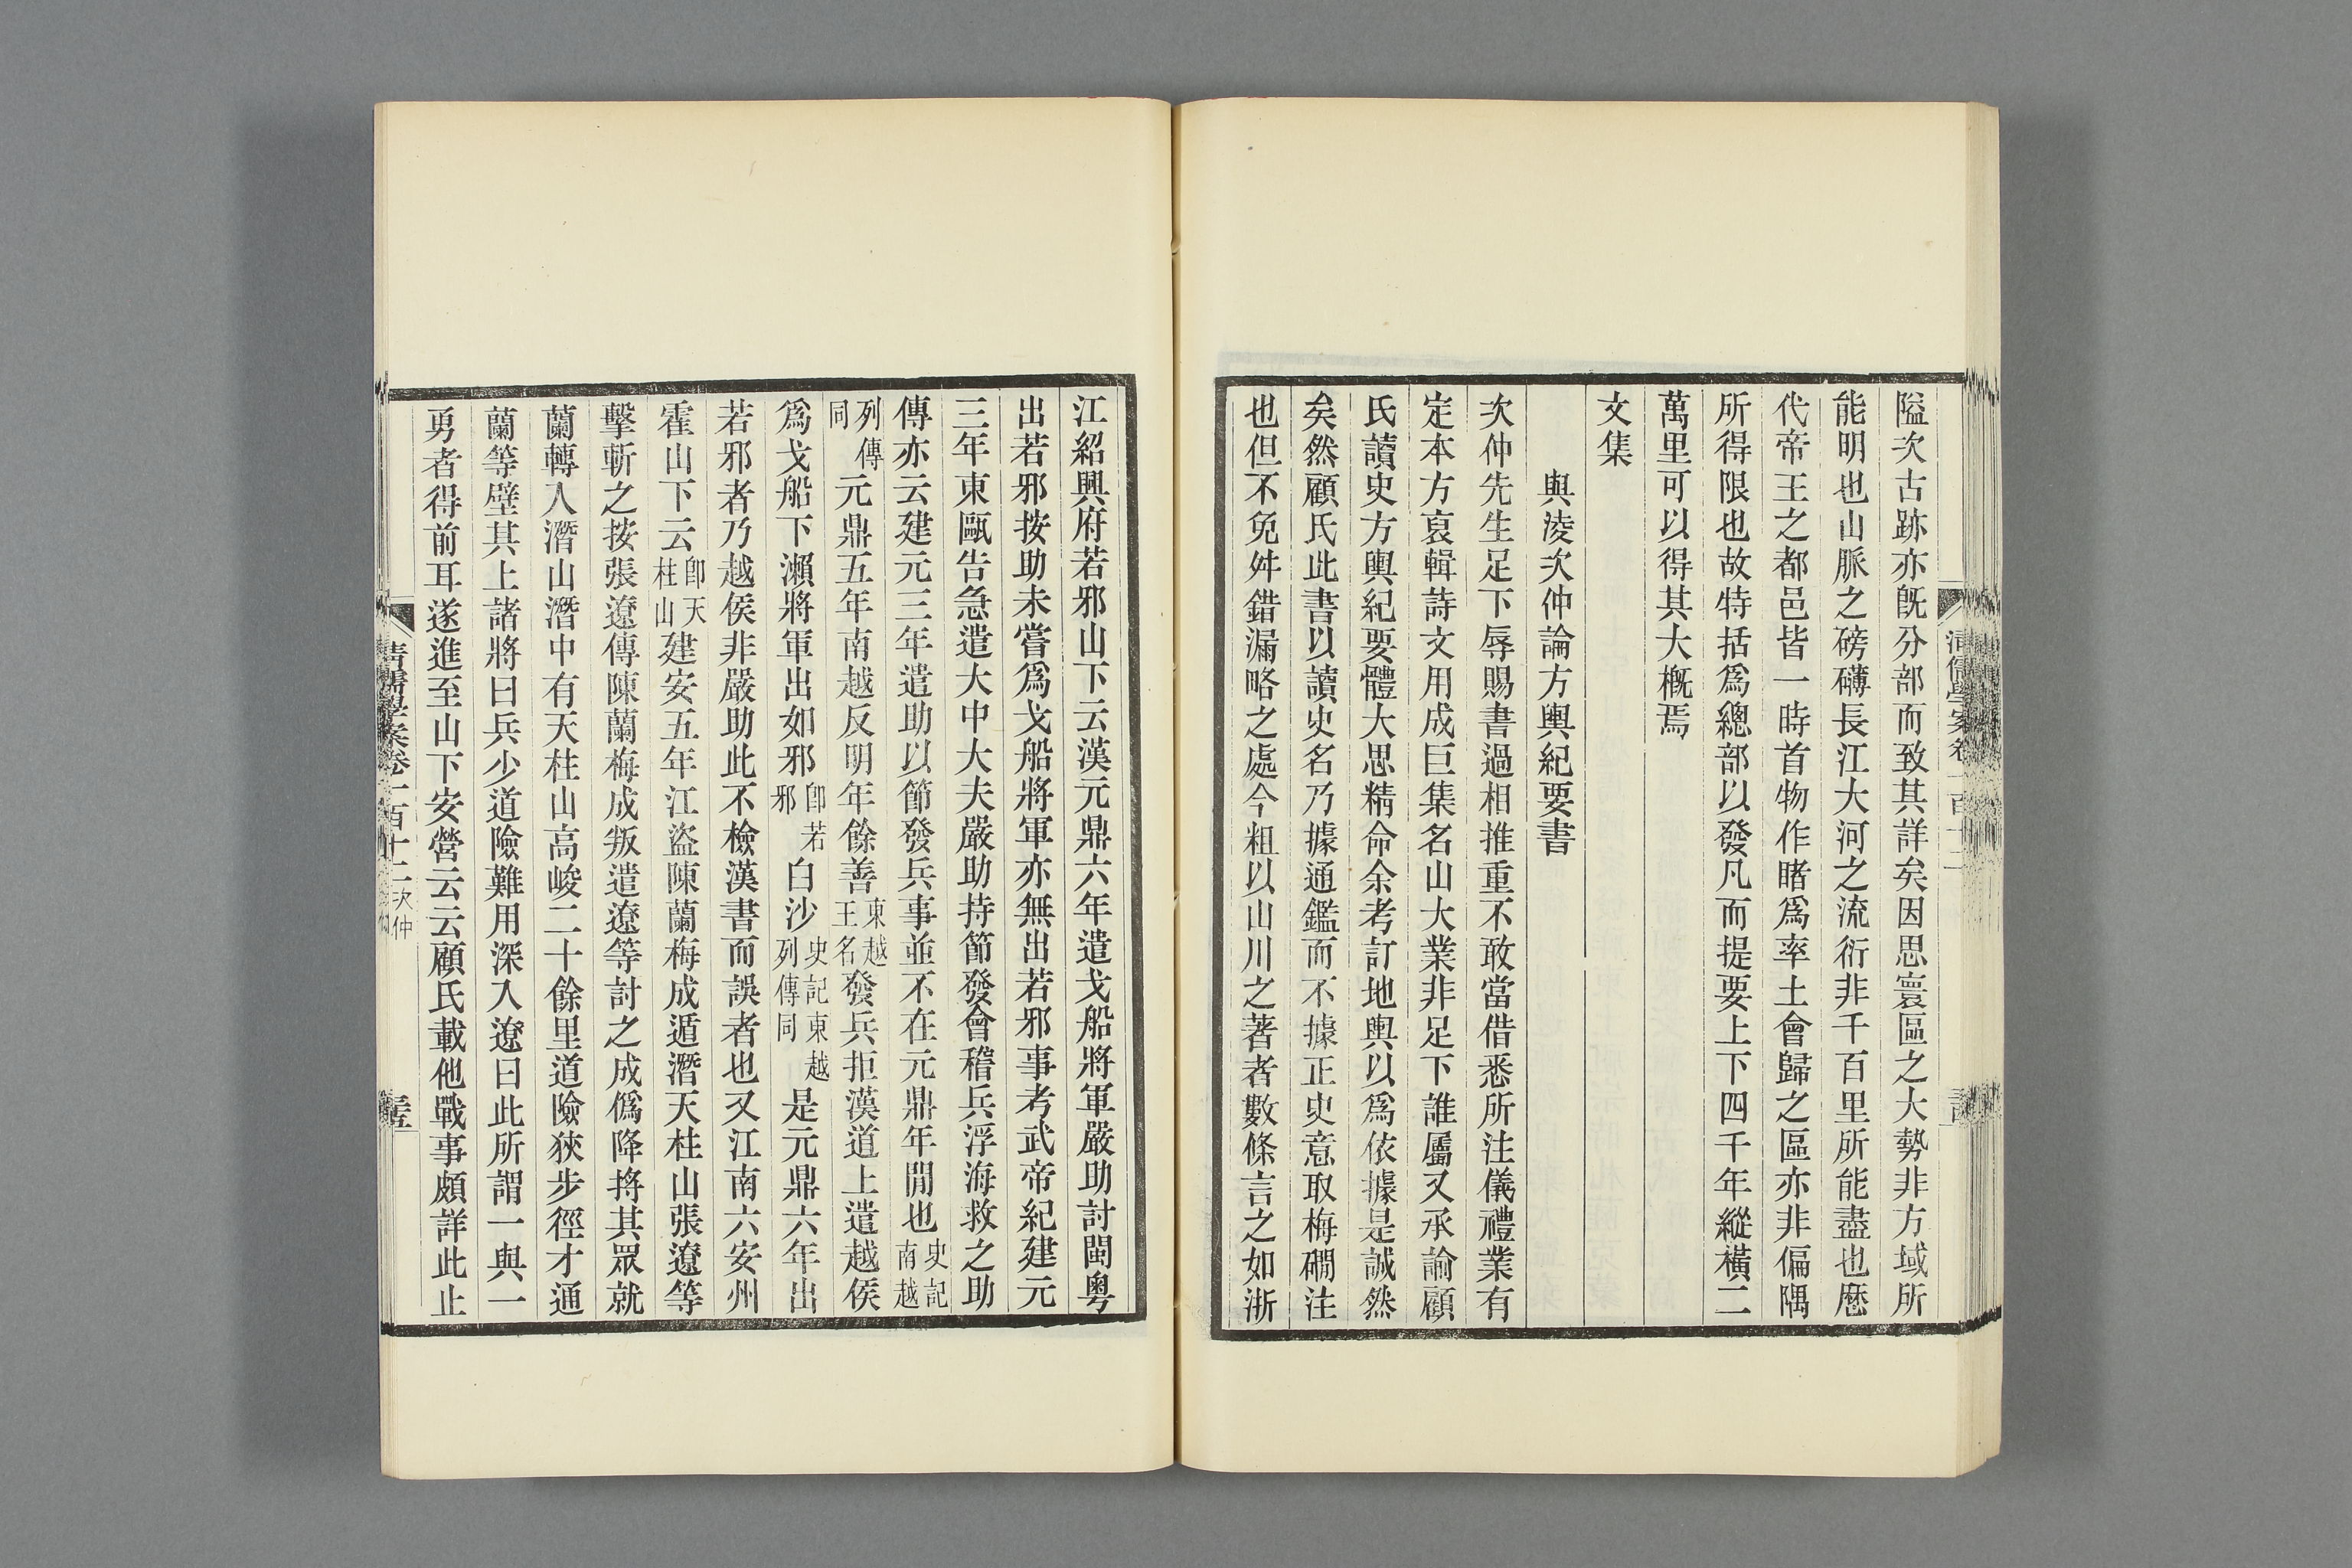 隘次古跡亦旣分部而致其詳矣因思寰區之大勢非方域所
能明也山脈之磅礴長江大河之流衍非千百里所能盡也歷
代帝王之都邑皆一時首物作睹爲率土會歸之區亦非偏隅
所得限也故特括爲總部以發凡而提要上下四千年縱橫二
萬里可以得其大概焉
文集
與淩次仲論方輿紀要書
次仲先生足下辱賜書過相推重不敢當借悉所注儀禮業有
定本方裒輯詩文用成巨集名山大業非足下誰屬又承諭顧
氏讀史方輿紀要體大思精命余考訂地輿以爲依據是誠然
矣然顧氏此書以讀史名乃據通鑑而不據正史意取梅磵注
也但不免舛錯漏略之處今粗以山川之著者數條言之如浙
江紹興府若邪山下云漢元鼎六年遣戈船將軍嚴助討閩粵
出若邪按助未嘗爲戈船將軍亦無出若邪事考武帝紀建元
三年東甌告急遣大中大夫嚴助持節發會稽兵浮海救之助
傳亦云建元三年遣助以節發兵事並不在元鼎年閒也史記南越
列傳同元鼎五年南越反明年餘善東越王名發兵拒漢道上遣越侯
爲戈船下瀨將軍出如邪卽若邪白沙史記東越列傳同是元鼎六年出
若邪者乃越侯非嚴助此不檢漢書而誤者也又江南六安州
霍山下云卽天柱山建安五年江盜陳蘭梅成遁潛天柱山張遼等
擊斬之按張遼傳陳蘭梅成叛遣遼等討之成僞降將其眾就
蘭轉入潛山潛中有天柱山高峻二十餘里道險狹步徑才通
蘭等壁其上諸將曰兵少道險難用深入遼曰此所謂一與一
勇者得前耳遂進至山下安營云云顧氏載他戰事頗詳此止
清儒學案卷一百十二 次仲